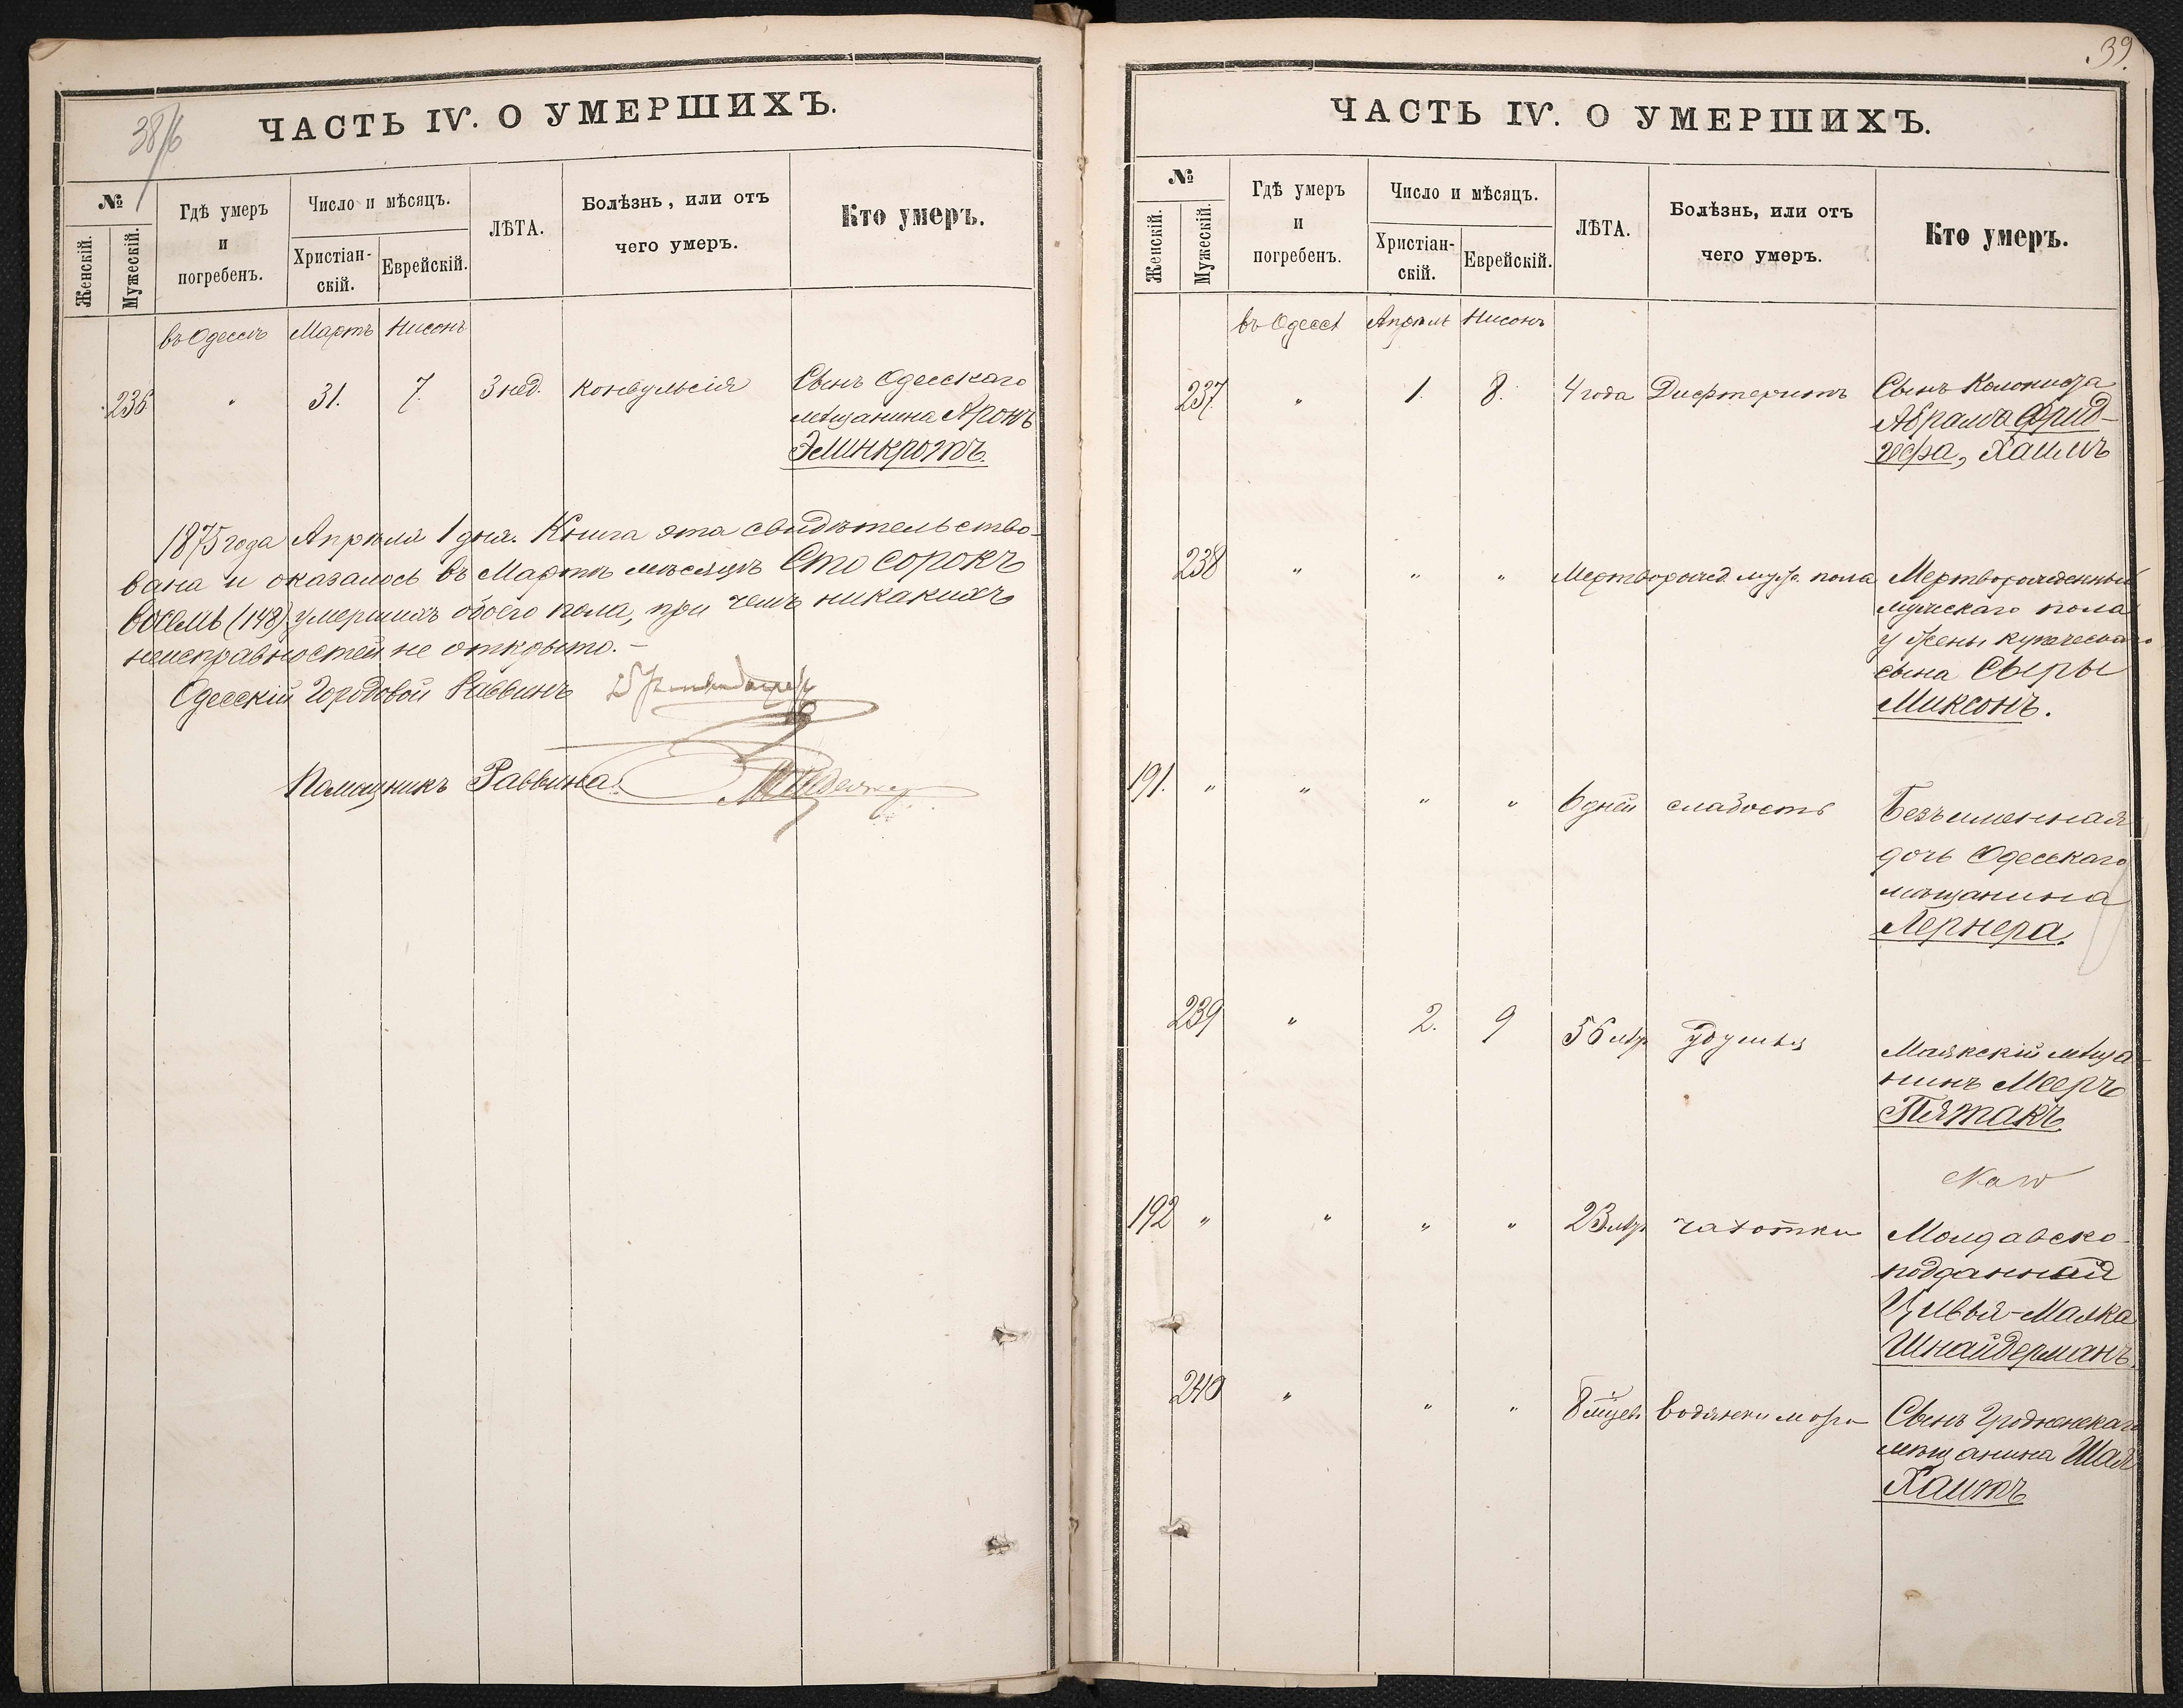 38/б
ЧАСТЬ IV. О УМЕРШИХЪ.
№
Женскій.
Мужескій.
Гдѣ умеръ
и
погребенъ.
Число и мѣсяцъ.
Христіан-
скій.
Еврейскій.
ЛѢТА.
Болѣзнь, или отъ
чего умеръ.
Кто умеръ.
въ Одессѣ Мартъ Нисонъ
236 " 31. 7. 3 нед. конвульсія Сынъ Одесскаго
мѣщанина Аронъ
Элинкротъ.
1875 года Апрѣля 1 дня. Книга эта свидѣтельство-
вана и оказалось въ Мартѣ мѣсяцѣ Сто сорокъ
восемь (148) умершихъ обоего пола, при чемъ никакихъ
неисправностей не открыто. –
Одесскій Городовой Раввинъ
Помощникъ Раввина
39.
ЧАСТЬ IV. О УМЕРШИХЪ.
№
Женскій.
Мужескій.
Гдѣ умеръ
и
погребенъ.
Число и мѣсяцъ.
Христіан-
скій.
Еврейскій.
ЛѢТА.
Болѣзнь, или отъ
чего умеръ.
Кто умеръ.
въ Одессѣ Апрѣль Нисонъ
237. " 1. 8. 4 года Дифтеритъ Сынъ Колониста
Абрама Фрид-
гофа, Хаимъ
238 " " " Мертворожд. муж. пола Мертворожденный
мужескаго пола
у жены купеческаго
сына Сыры
Миксонъ.
191. " " " " 6 дней слабость Безъименная
дочь Одесскаго
мѣщанина
Лернера.
239 " 2. 9 56 лѣтъ удушья Маякскій мѣща-
нинъ Мееръ
Пятакъ
192 " " " " 23 лѣтъ чахотки Молдавско-
подданная
Цивья-Малка
Шнайдерманъ.
240 " " " 8 мѣсяц. водянки мозга Сынъ Гродненскаго
мѣщанина Шая
Хаитъ